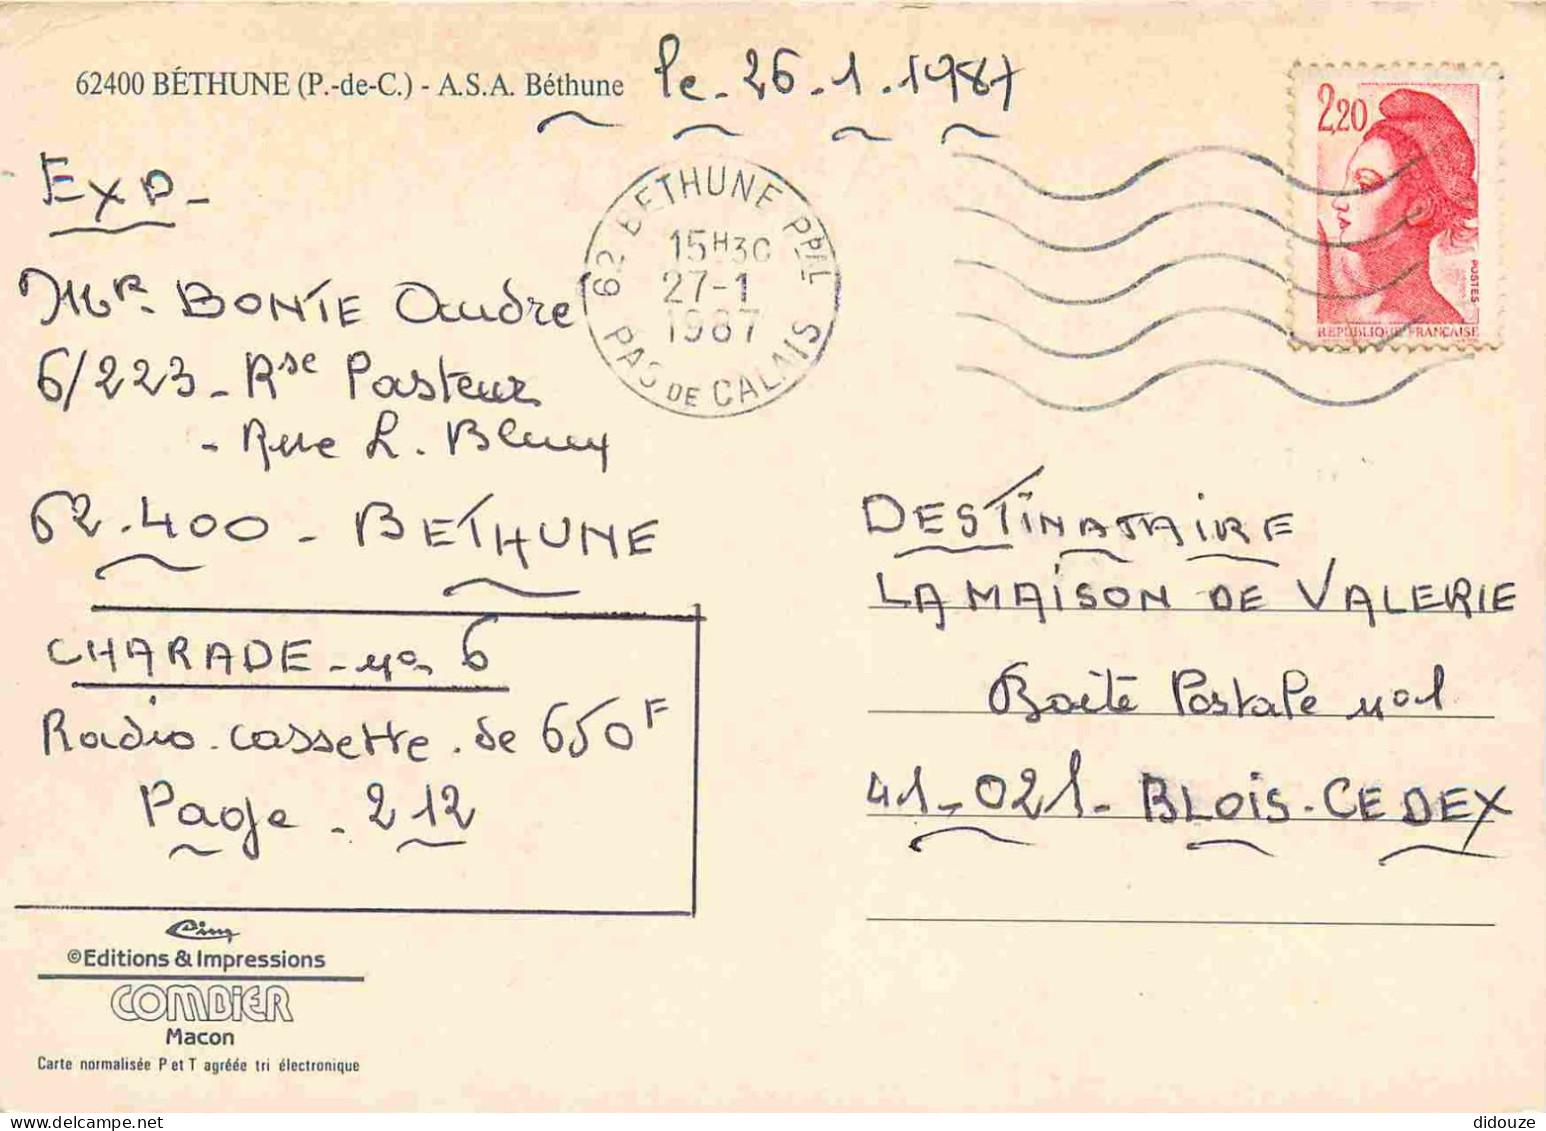 62400 BÉTHUNE (P.-de-C.) - A.S.A. Béthune
le - 26 - 1 . 1987
2,20
POSTES
REPUBLIQUE FRANÇAISE
62 BETHUNE PPAL
15H30
27-1
1987
PAS DE CALAIS
EXP -
Mr. BONTE Andre
6/223 - Rse Pasteur
- Rue L. Blum
62.400 - BETHUNE
CHARADE - no 6
Radio . cassette . de 650F
Page - 212
DESTINATAIRE
LA MAISON DE VALERIE
Boite Postale no1
41 - 021 - BLOIS - CEDEX
Cim
©Editions & Impressions
COMBIER
Macon
Carte normalisée P et T agréée tri électronique
didouze